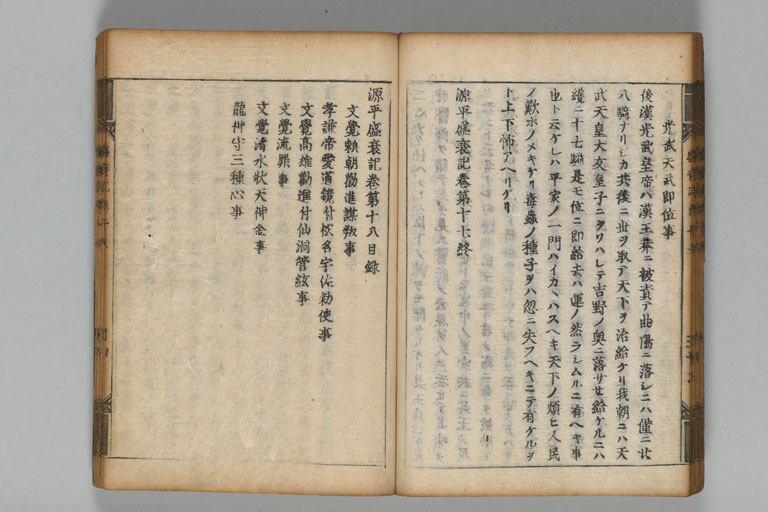 光武天武即位事
後漢光武皇帝ハ漢王莽ニ被責テ曲陽ニ落シニハ僅ニ廿
八騎ナリシカ共後ニ世ヲ取テ天下ヲ治給ケリ我朝ニハ天
武天皇大友皇子ニヲソハレテ吉野ノ奥ニ落サセ給ケルニハ
纔ニ十七騎是モ位ニ即給去ハ運ノ然ラシムルニ有ヘキ事
也ト云ケレハ平家ノ一門ハイカヽハスヘキ天下ノ煩ヒ人民
ノ歎ホノメキケリ毒蟲ノ種子ヲハ忽ニ失フヘキニテ有ケルヲ
ト上下怖アヘリケリ
源平盛衰記巻第十七終
源平盛衰記巻第十八目録
文覺頼朝勸進謀叛事
孝謙帝愛道鏡付松名宇佐勅使事
文覺高雄勸進付仙洞管絃事
文覺流罪事
文覺清水状天神金事
龍神守三種心事